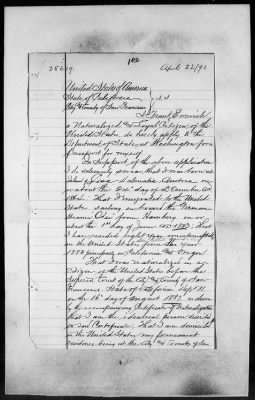 25619.
100
April 22/92
United States of America
State of California
City & County of San Francisco } S.S
I, Frank
a Naturalized and Loyal Citizen of the
United States, do hereby apply to the
Department of State, at Washington for a
Passport for myself.
In support of the above application
I do solemnly swear that I was born at
Dalmatia, Austria, on
or about the 24th day of December AD
That I emigrated to the United
States, sailing on board the Steam
from Hamburg, on or
about the 1st day of June AD 1883; that
I have resided uninterruptedly
in the United States, from the year
1883 principally in California and Oregon
That I was naturalized as a
Citizen of the United States before the
Superior Court of the City and County of San
Francisco, State of California, Dept
on the 16th day of August 1889, as shown
by the accompanying Certificate of Naturalization
that I am the identical person described
in said Certificate. That I am domiciled
in the United States, my permanent
residence being at the City and County of San